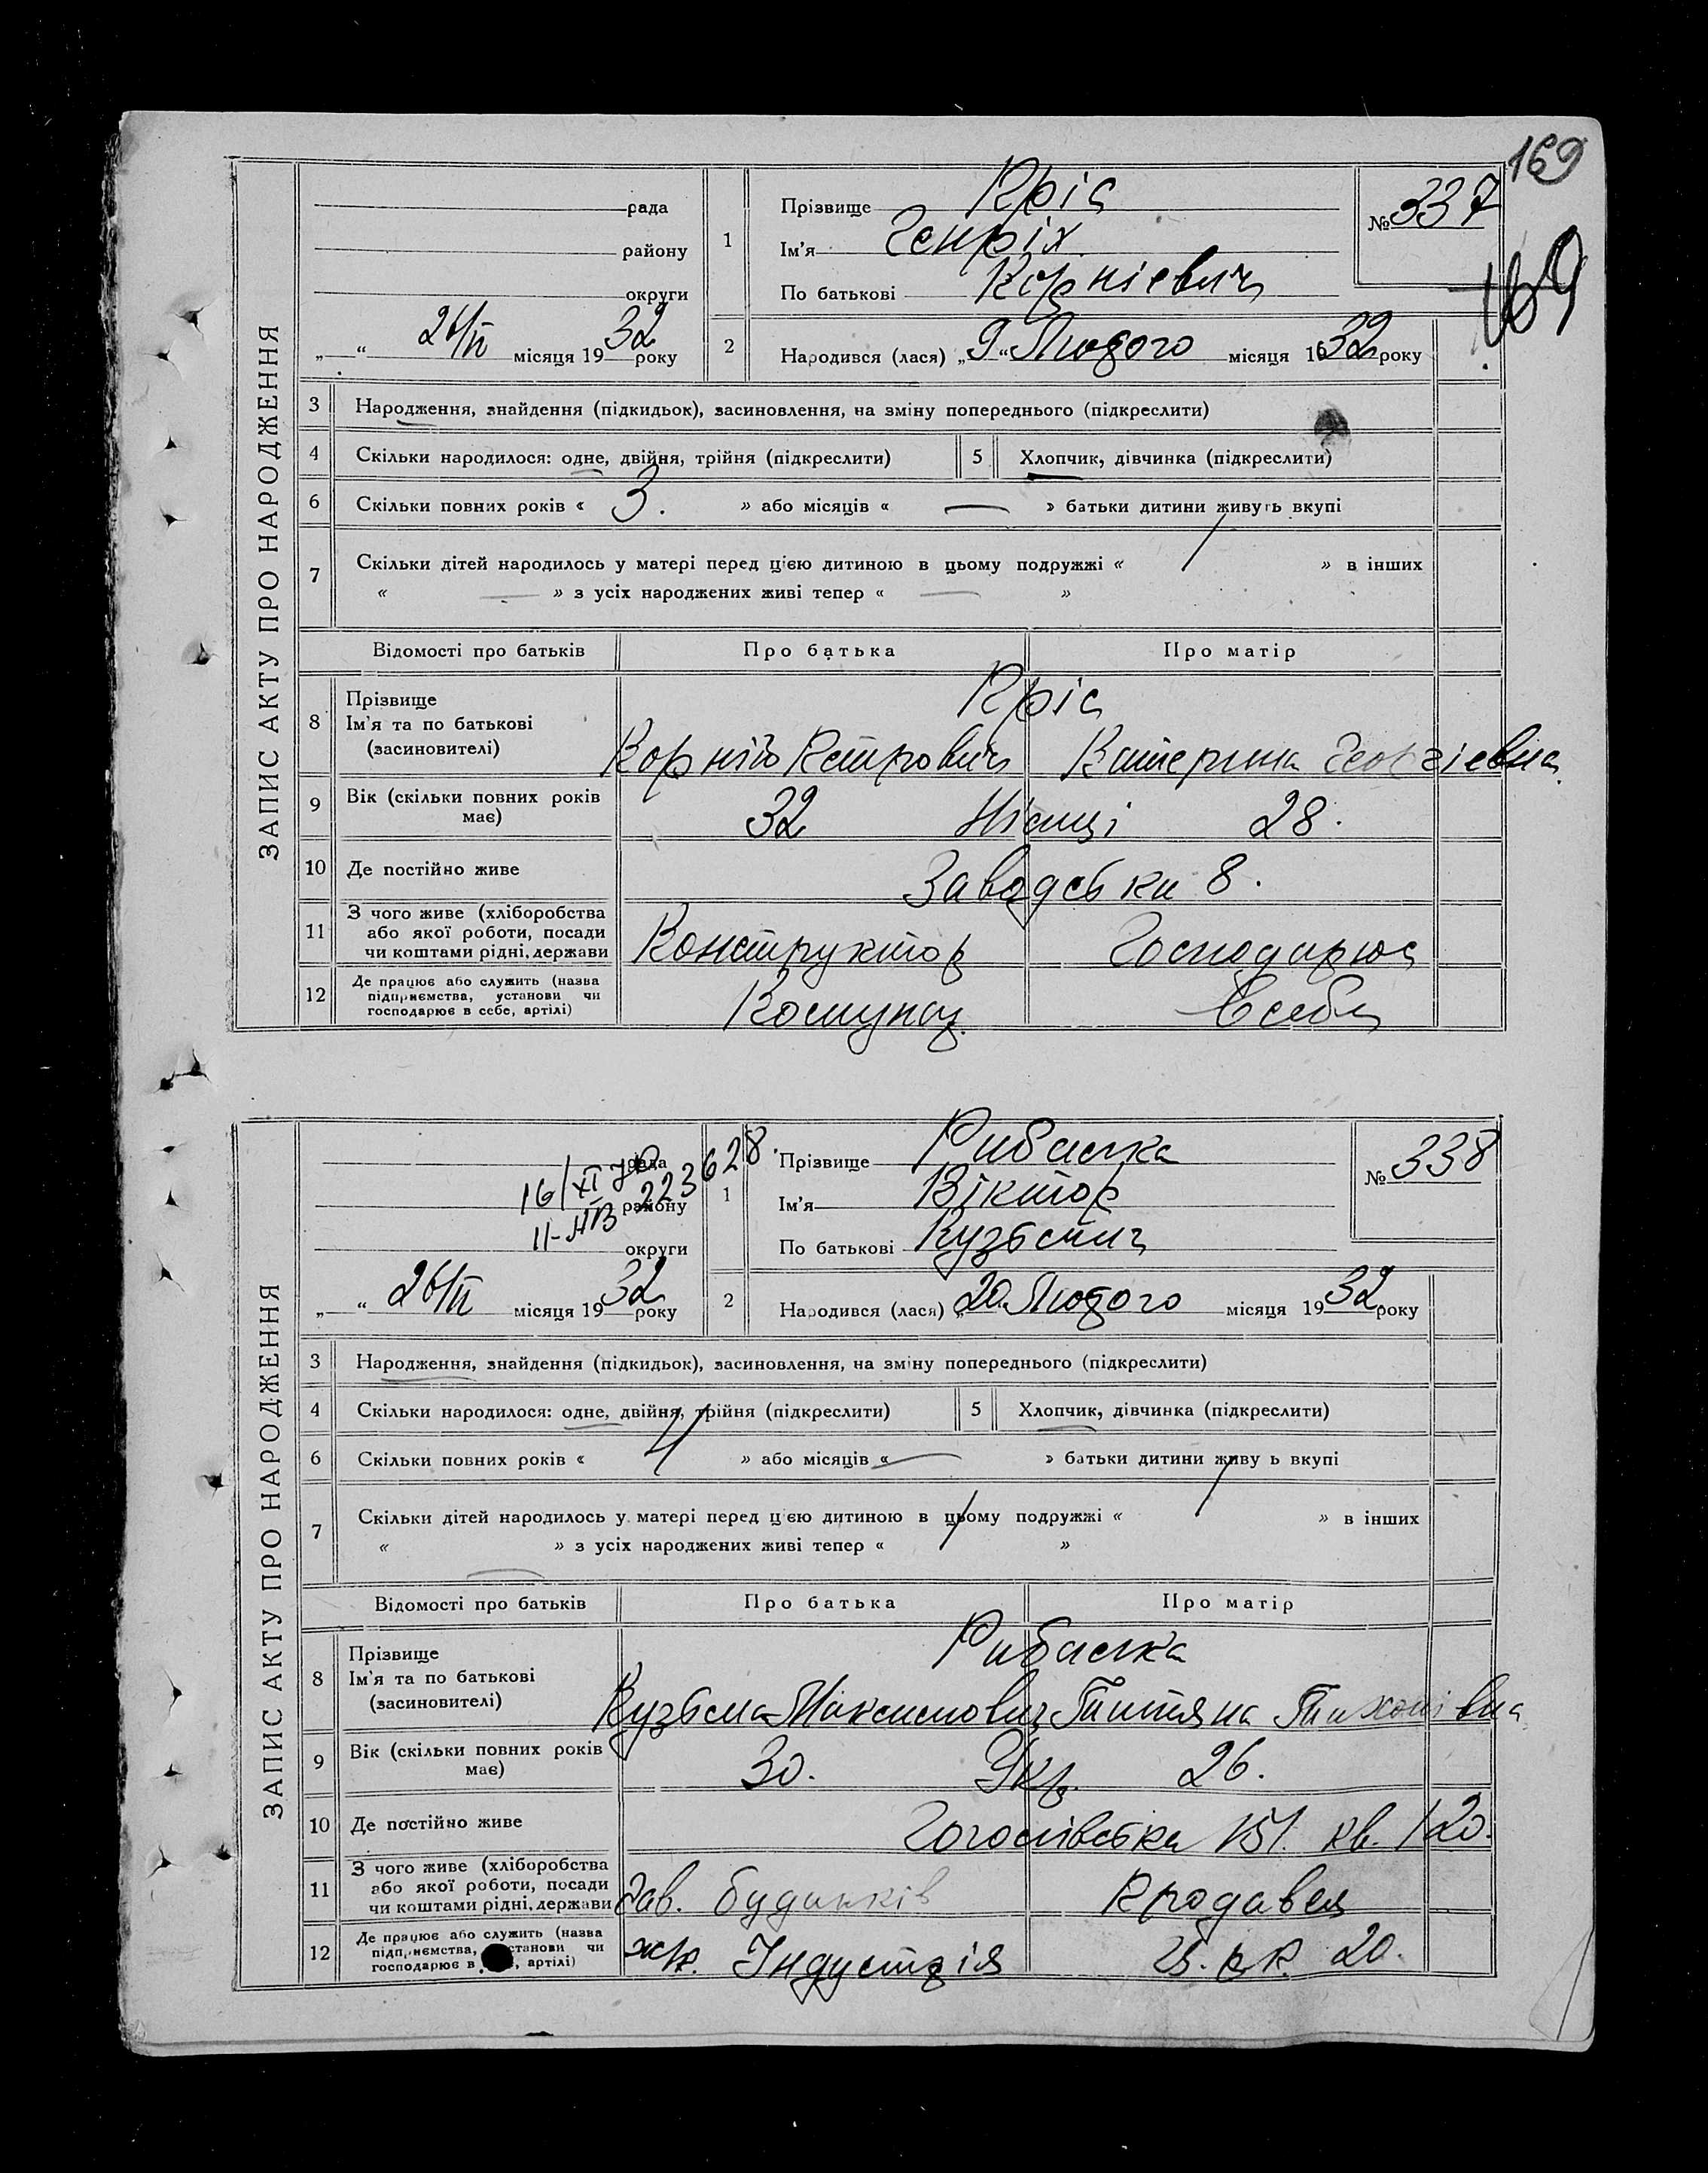 169
169
ЗАПИС АКТУ ПРО НАРОДЖЕННЯ
рада
району
округи
„ “ 26/II місяця 1932 року
1 Прізвище Кріс
Ім'я Генріх
По батькові Корнієвич
№ 337
2 Народився (лася) „9“ Лютого місяця 1932 року
3 Народження, знайдення (підкидьок), засиновлення, на зміну попереднього (підкреслити)
4 Скільки народилося: одне, двійня, трійня (підкреслити) 5 Хлопчик, дівчинка (підкреслити)
6 Скільки повних років « 3. » або місяців « — » батьки дитини живуть вкупі
7 Скільки дітей народилось у матері перед цією дитиною в цьому подружжі « / » в інших
« — » з усіх народжених живі тепер « — »
Відомості про батьків Про батька Про матір
8 Прізвище Ім'я та по батькові (засиновителі) Кріс
Корній Петрович Катерина Георгієвна
9 Вік (скільки повних років має) 32 Німці 28.
10 Де постійно живе Заводська 8.
11 З чого живе (хліборобства або якої роботи, посади чи коштами рідні, держави Конструктор Господарює
12 Де працює або служить (назва підприємства, установи чи господарює в себе, артілі) Комунар В себе
ЗАПИС АКТУ ПРО НАРОДЖЕННЯ
рада
району
округи
16/XI
223628.
II-
„ “ 26/II місяця 1932 року
1 Прізвище Рибалка
Ім'я Віктор
По батькові Кузьмич
№ 338
2 Народився (лася) „20 Лютого місяця 1932 року
3 Народження, знайдення (підкидьок), засиновлення, на зміну попереднього (підкреслити)
4 Скільки народилося: одне, двійня, трійня (підкреслити) 5 Хлопчик, дівчинка (підкреслити)
6 Скільки повних років « 4 » або місяців « — » батьки дитини живу ь вкупі
7 Скільки дітей народилось у матері перед цією дитиною в цьому подружжі « / » в інших
« — » з усіх народжених живі тепер « / »
Відомості про батьків Про батька Про матір
8 Прізвище Ім'я та по батькові (засиновителі) Рибалка
Кузьма Максимович Татяна Тихонівна
9 Вік (скільки повних років має) 30. Укр. 26.
10 Де постійно живе Гоголівська 151. кв. 120.
11 З чого живе (хліборобства або якої роботи, посади чи коштами рідні, держави Зав. будинків Продавец
12 Де працює або служить (назва підприємства, установи чи господарює в , артілі) Індустрія 20.